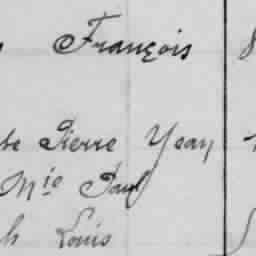 François
Pierre Yvan
Mie Paul
Louis